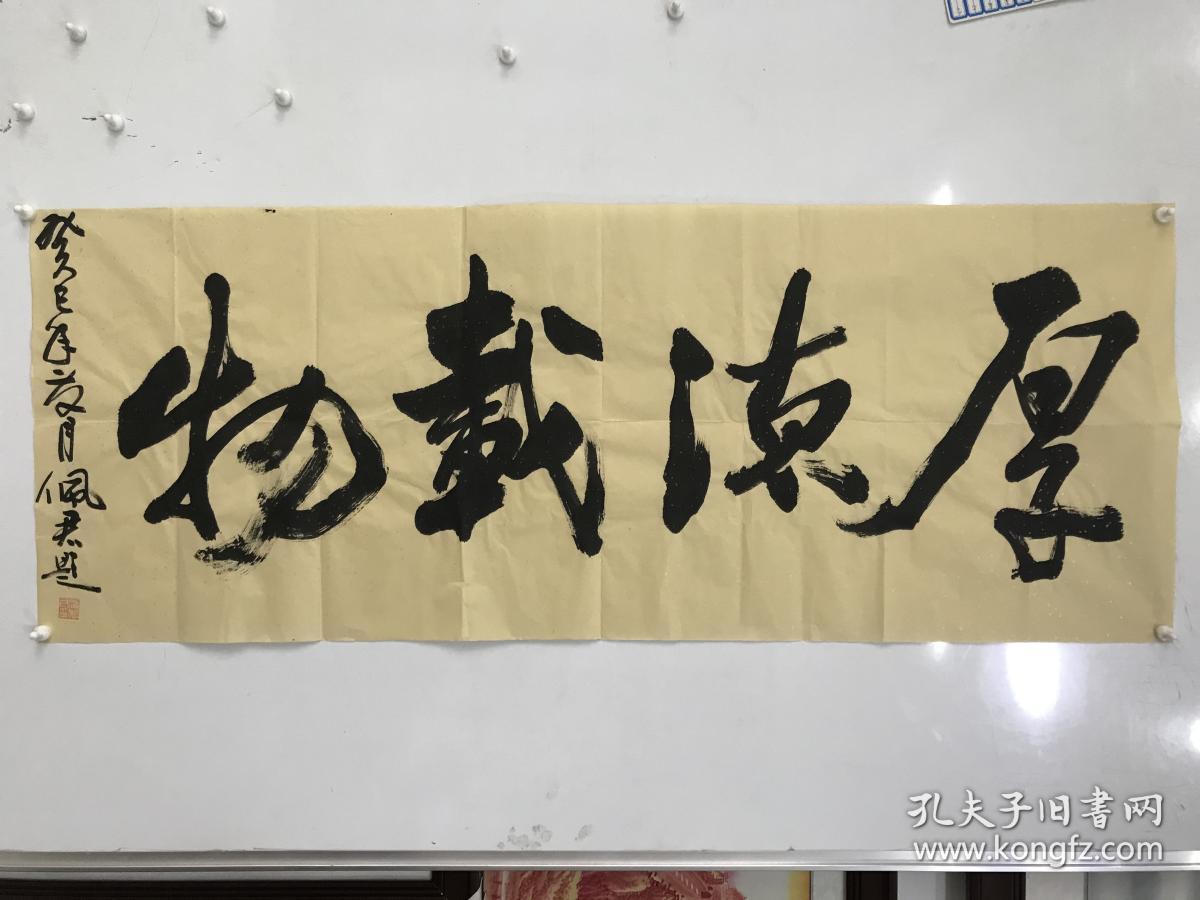 厚德載物
癸巳年夏月佩君題
孔夫子旧书网
www.kongfz.com